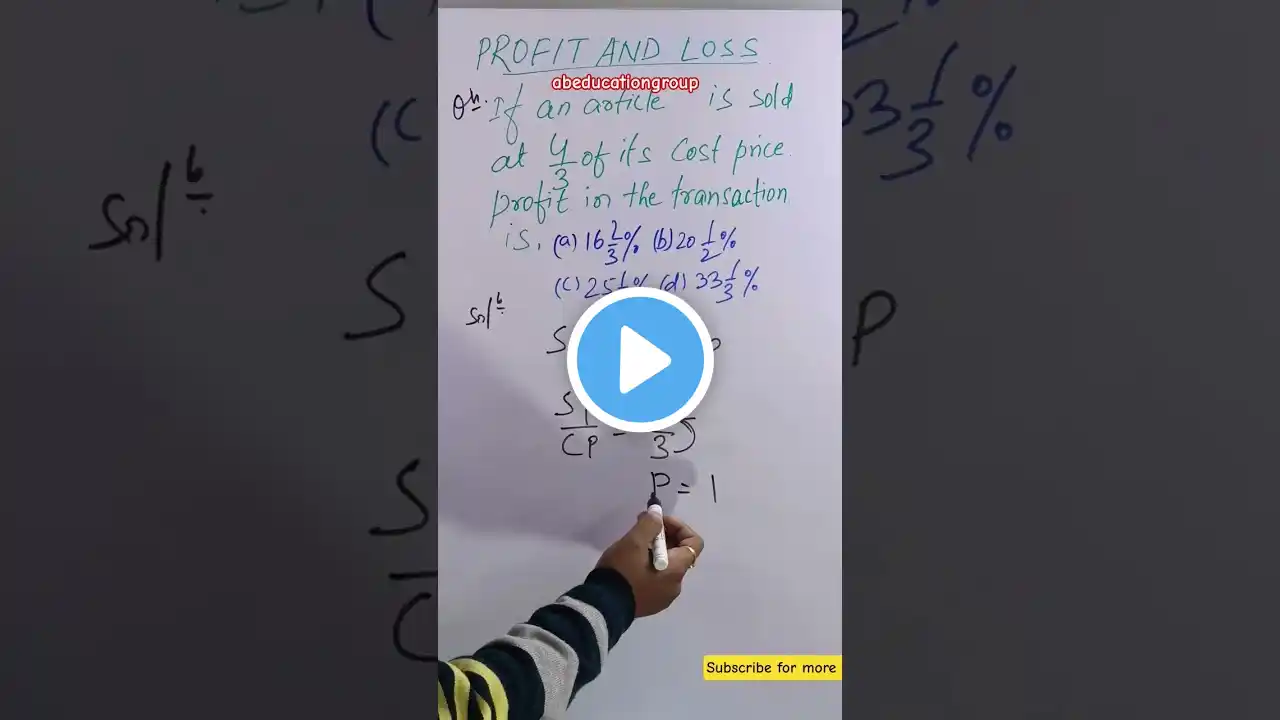 PROFIT AND LOSS
abeducationgroup
Qn. If an article is sold
at 4/3 of its cost price
profit in the transaction
is. (a) 16 2/3 % (b) 20 1/2 %
(c) 25 % (d) 33 1/3 %
Soln
S
SP
CP = 3
P = 1
Subscribe for more